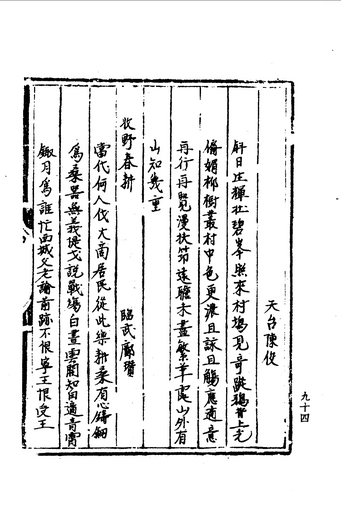 天台陳俊
斜日生輝壯碧峯照來村塢見奇蹤鴉背上光
偹媚柳樹叢村中色更濃且詠且觴應適意
再行再覽漫扶筇遠瞻未盡繁華處山外有
山知幾重
牧野春耕
臨武鄺瓚
當代何人伐大商居民從此樂耕桑有心鑄劒
為桑器無義提戈說戰塲白晝雲閒知自適青霄
鋤月為誰忙西城父老論前跡不恨寧王恨受王
九十四